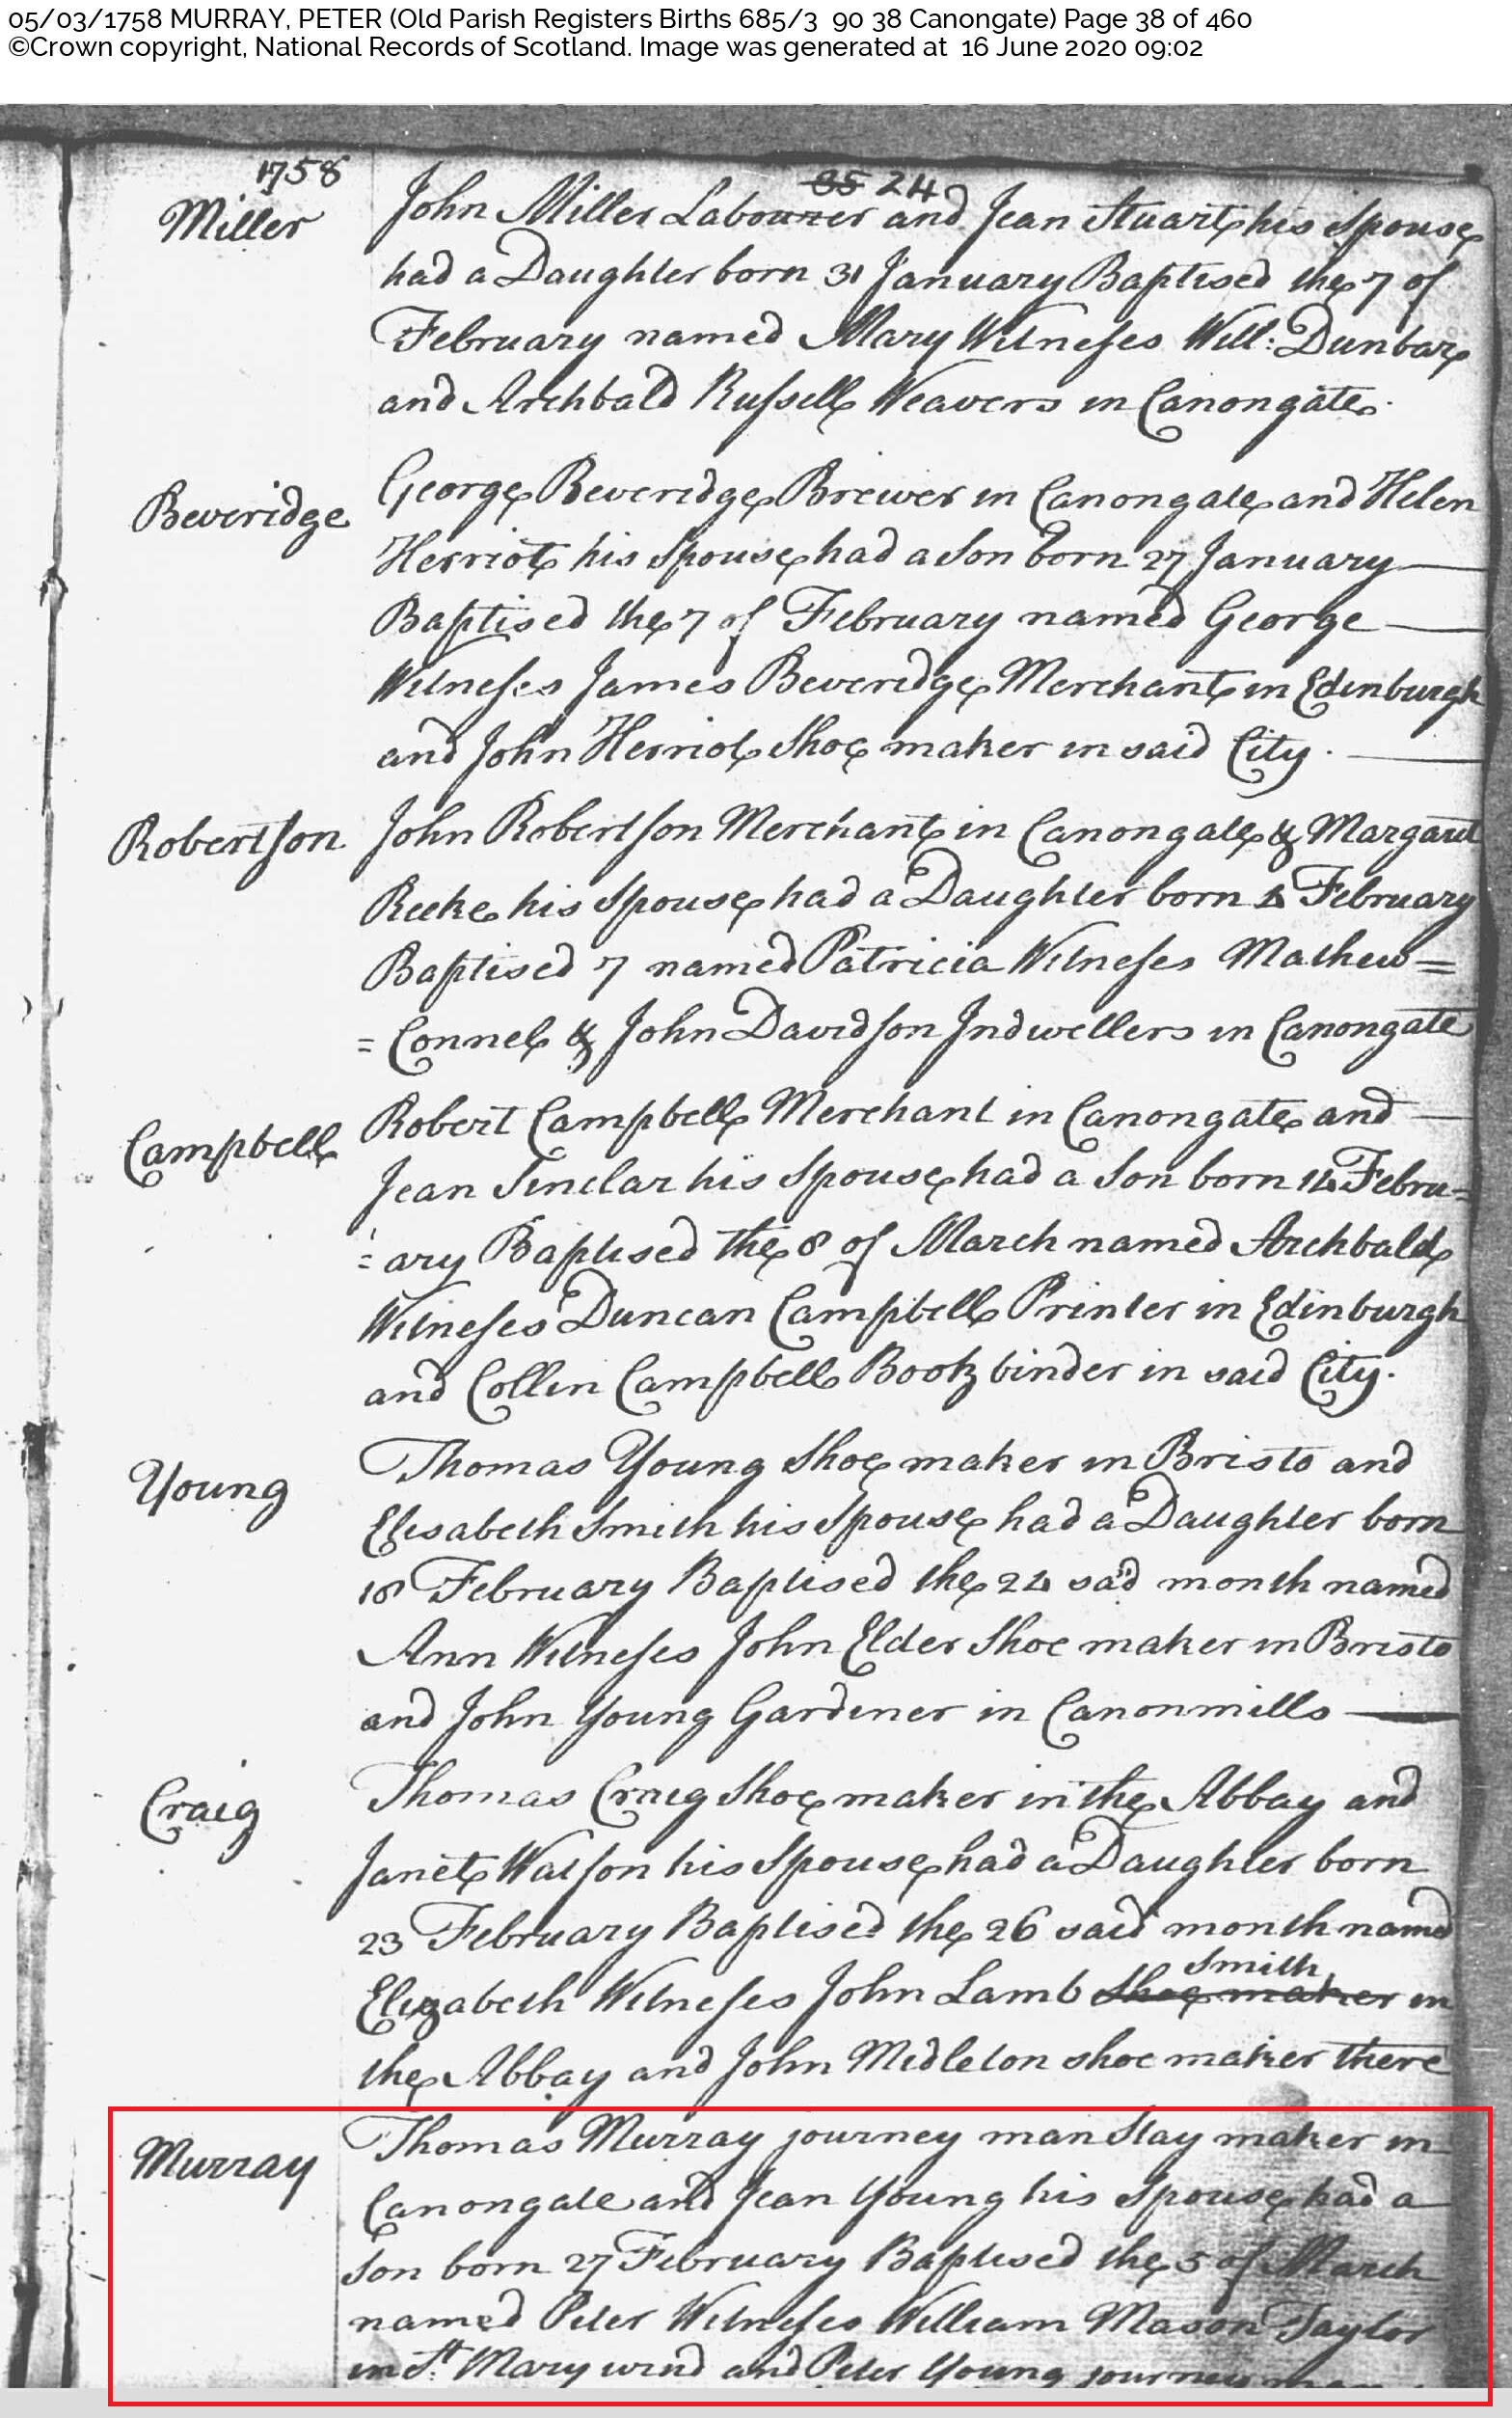 05/03/1758 MURRAY, PETER (Old Parish Registers Births 685/3 90 38 Canongate) Page 38 of 460
©Crown copyright, National Records of Scotland. Image was generated at 16 June 2020 09:02
1758
85 24
Miller
John Miller Labourer and Jean Stuart his Spouse
had a Daughter born 31 January Baptised the 7 of
February named Mary Witneſses Will: Dunbar
and Archbald Ruſsell Weavers in Canongate.
Beveridge
George Beveridge Brewer in Canongate and Helen
Herriot his Spouse had a Son born 27 January
Baptised the 7 of February named George
Witneſses James Beveridge Merchant in Edinburgh
and John Herriot Shoe maker in said City.
Robertſon
John Robertſon Merchant in Canongate & Margaret
Reeke his Spouse had a Daughter born 4 February
Baptised 7 named Patricia Witneſses Mathew =
= Connel & John Davidſon Indwellers in Canongate
Campbell
Robert Campbell Merchant in Canongate and
Jean Sinclar his Spouse had a Son born 14 Febru=
=ary Baptised the 8 of March named Archbald
Witneſses Duncan Campbell Printer in Edinburgh
and Collin Campbell Book binder in said City.
Young
Thomas Young Shoe maker in Bristo and
Elisabeth Smith his Spouse had a Daughter born
18 February Baptised the 24 said month named
Ann Witneſses John Elder Shoe maker in Bristo
and John Young Gardiner in Canonmills
Craig
Thomas Craig Shoe maker in the Abbay and
Janet Watſon his Spouse had a Daughter born
23 February Baptised the 26 said month named
Smith
Elizabeth Witneſses John Lamb Shoe maker in
the Abbay and John Midleton shoe maker there
Murray
Thomas Murray journey man Stay maker in
Canongate and Jean Young his Spouse had a
Son born 27 February Baptised the 5 of March
named Peter Witneſses William Mason Taylor
in St. Mary wind and Peter Young journey man